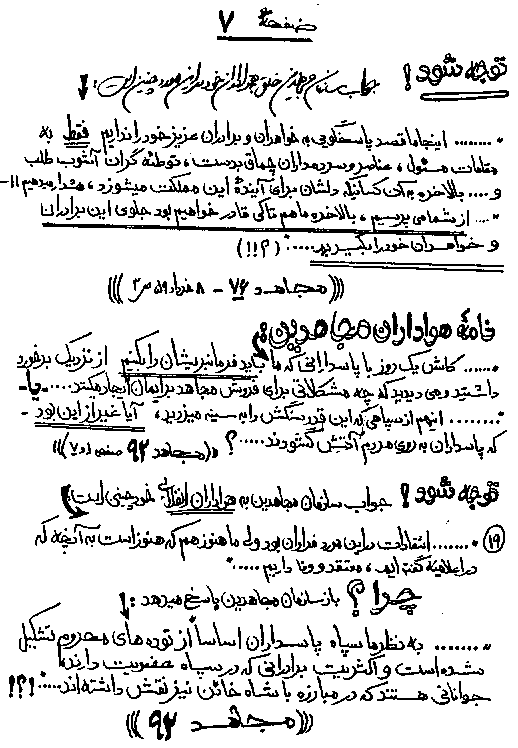 صفحهٔ ۷
توجه شود! جواب سازمان مجاهدین خلق به هواداران خود در این مورد چنین است:
"....... اینجا ما قصد پاسخگویی به خواهران و برادران عزیز خود را نداریم فقط به
مقامات مسئول، عناصر و سردمداران چماق بدست، توطئه گران آشوب طلب
و .... بالاخره به آن کسانیکه دلشان برای آیندهٔ این مملکت میشوزد، هشدار میدهیم!!-
".... از شما می پرسیم، بالاخره ما هم تا کی قادر خواهیم بود جلوی این برادران
و خواهران خود را بگیریم....." (؟!!)
(((مجاهد ۷۶ - ۸ خرداد ۵۹ ص ۳)))
نامهٔ هواداران مجاهدین:
"...... کاش یک روز با پاسدارانی که ما باید فرمانبریشان را بکنیم از نزدیک برخورد
داشتید و می دیدید که چه مشکلاتی برای فروش مجاهد برایمان ایجاد میکنند..... یا-
"......... اینهم از سپاهی که این قدر سنگش را به سینه میزدید، آیا غیر از این بود -
که پاسداران به روی مردم آتش گشودند.....؟ ((مجاهد ۹۲ صفحه ۶ و ۷))
توجه شود! جواب سازمان مجاهدین به هواداران انقلابی خود چنین است:
(۱۹) "....... انتقادات در این مورد فراوان بود ولی ما هنوز هم که هنوز است به آنچه که
در اعلامیه گفته ایم، معتقد و وفا داریم ....."
چرا؟ باز سازمان مجاهدین پاسخ میدهد:
"....... به نظر ما سپاه پاسداران اساساً از توده های محروم تشکیل
شده است و اکثریت برادرانی که در سپاه عضویت دارند،
جوانانی هستند که در مبارزه با شاه خائن نیز نقش داشته اند....." !؟!
(((مجاهد ۹۲)))